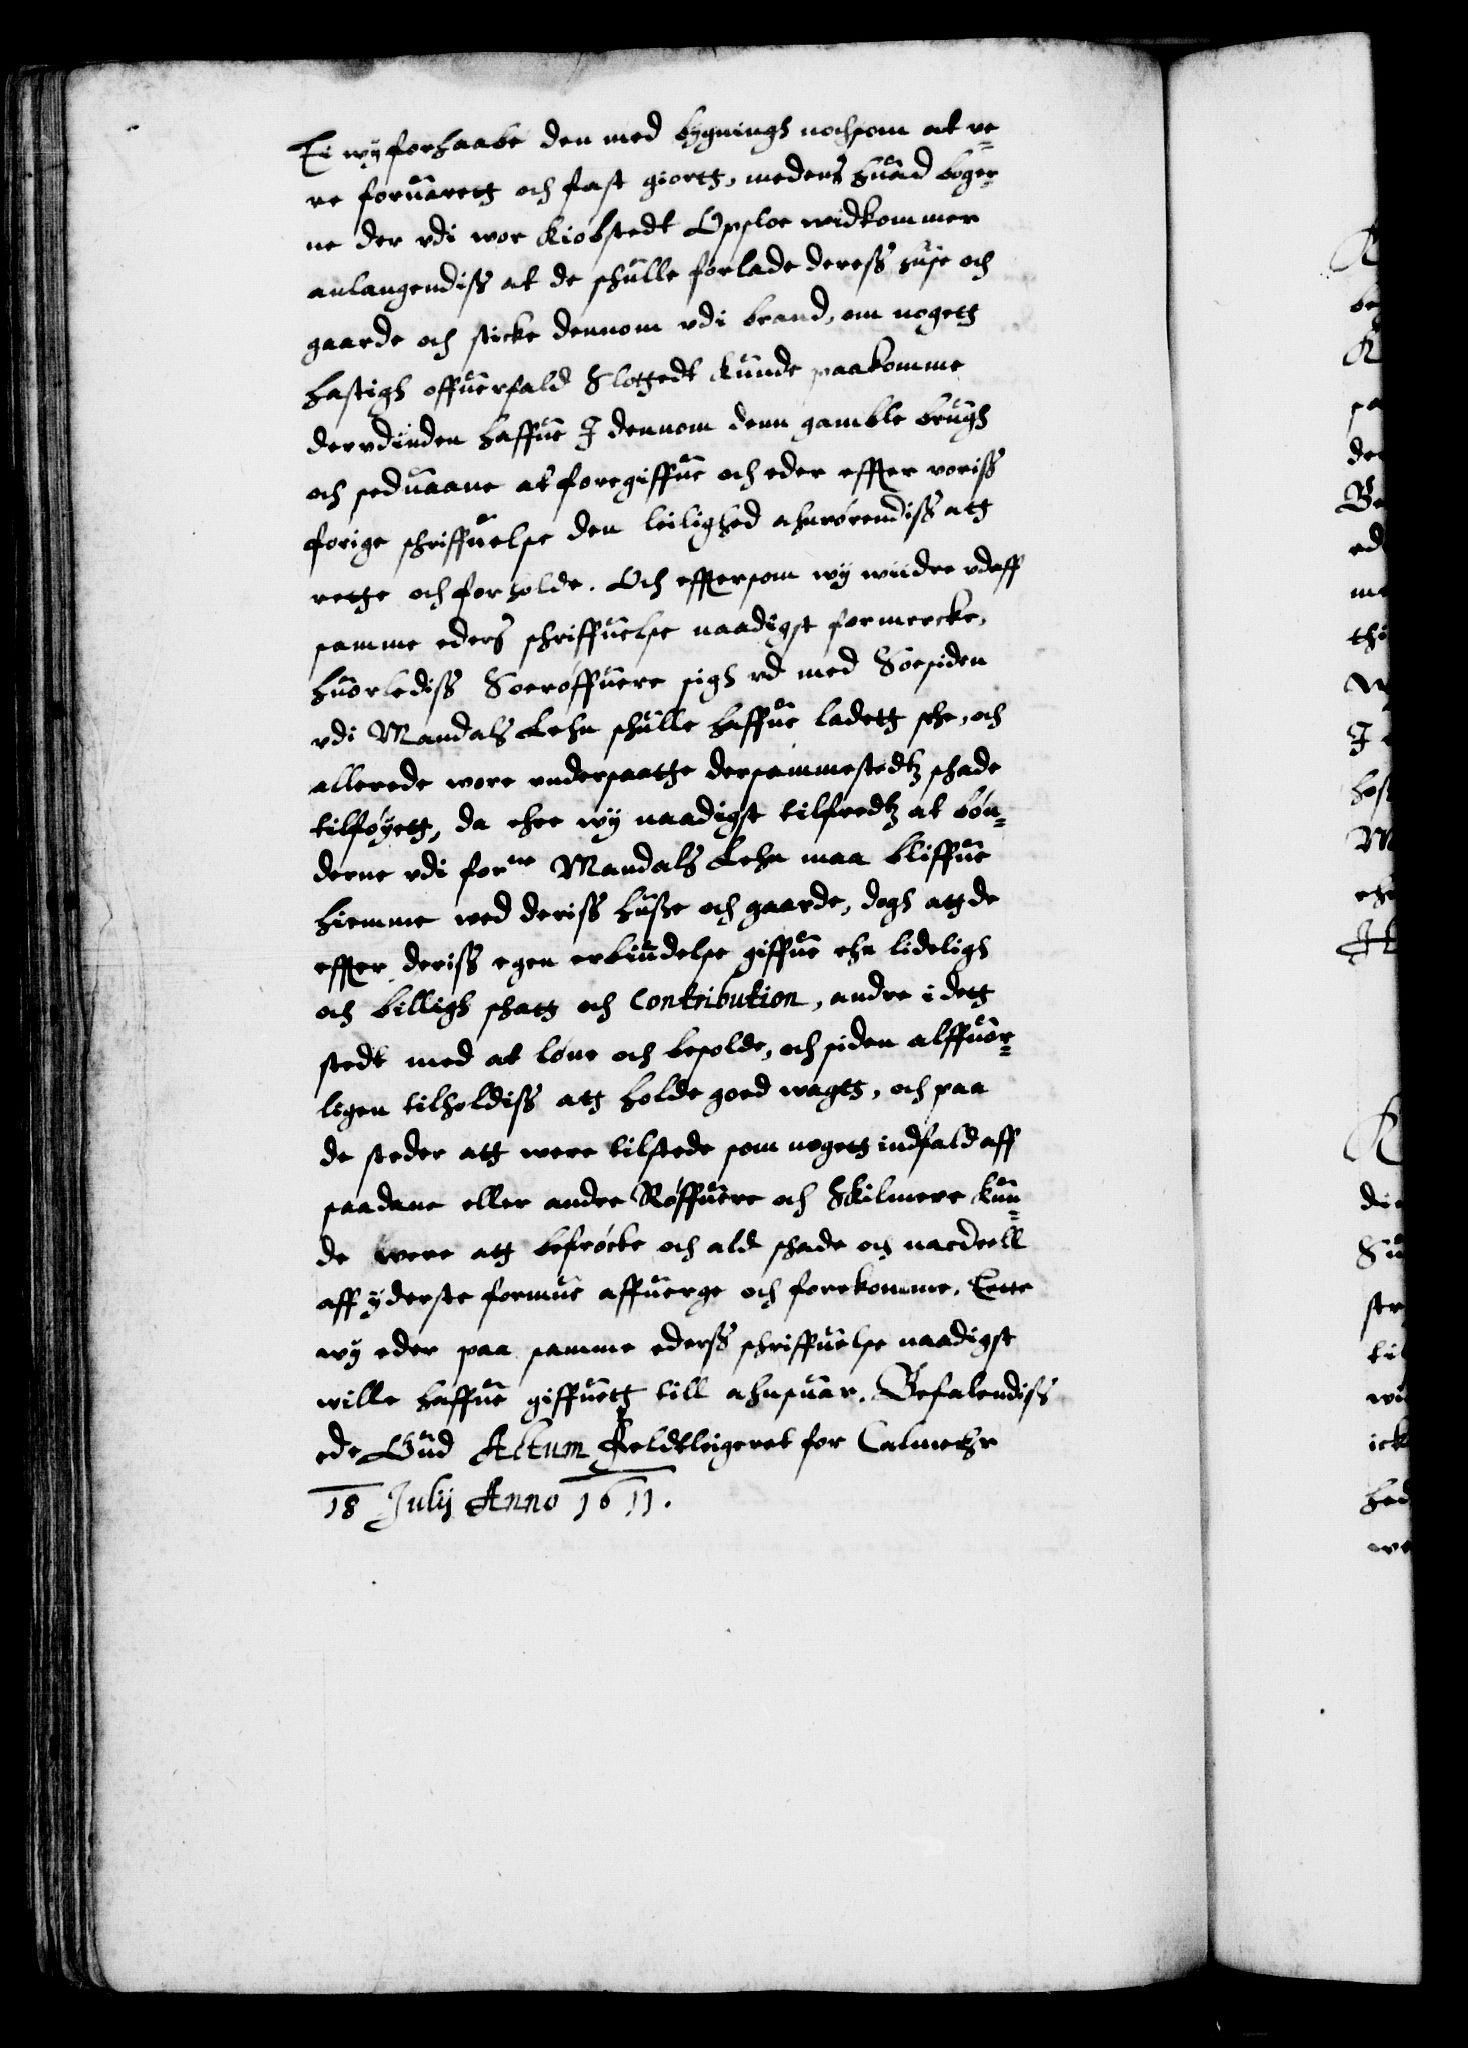 Ei wy forhaabe den med bygnings nochsom at ve=
re foruaretth och fast giortth, medens huad boger=
ne der vdi wor Kiobstedt Opsloe widkommer
anlangendiss at de schulle forlade deress huse och
gaarde och sticke dennom vdi brand, om nogetth
hastigh offuerfald Slottedt kunde paakomme
dervdinden haffue I dennom denn gamble brugh
och seduaane at foregiffue och eder effter voriss
forige schriffuelse den leilighed ahnrörendiss att
rette och forholde. Och efftersom wy wiidre vdaff
samme eders schriffuelse naadigst formercke,
huorlediss Soeröffuere sigh vd med Söesiden
vdi Mandals Lehn schulle haffue ladett sehe, och
allerede wore vndersaatthe dersammestedtz schade
tilföyett, da ehre wy naadigst tilfredtz at bön=
derne vdi forne Mandals Lehn maa bliffue
hiemme wed deriss husze och gaarde, dogh att de
effter deriss egen erbiudelse giffue ehn lideligh
och billigh schatt och Contribution, andre i dett
stedt med at löne och besolde, och siden alffuor=
ligen tilholdiss att holde goed wagtt, och paa
de steder att were tilstede som nogett indfald aff
saadane eller andre Röffuere och Skilmere kun=
de were att befröcte och ald schade och nacdeell
aff yderste formue affuerge och forekomme,
wy eder paa samme ederss schriffuelse naadigst
wille haffue giffuett till ahnsuar. Befalendiss
eder Gud Actum Feldtleigeret for Calmehr
18 Julij Anno 1611.